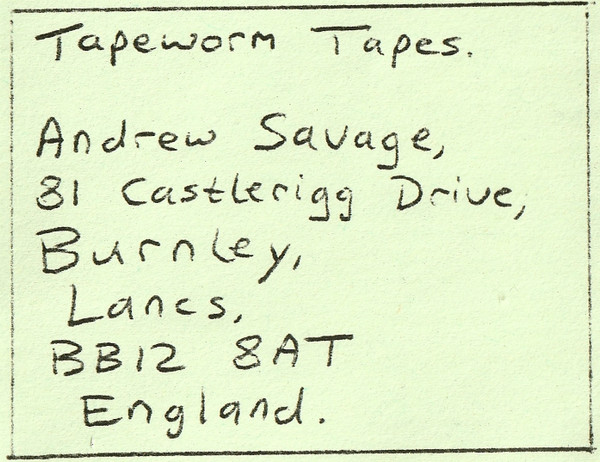 Tapeworm Tapes.
Andrew Savage,
81 Castlerigg Drive,
Burnley,
Lancs,
BB12 8AT
England.